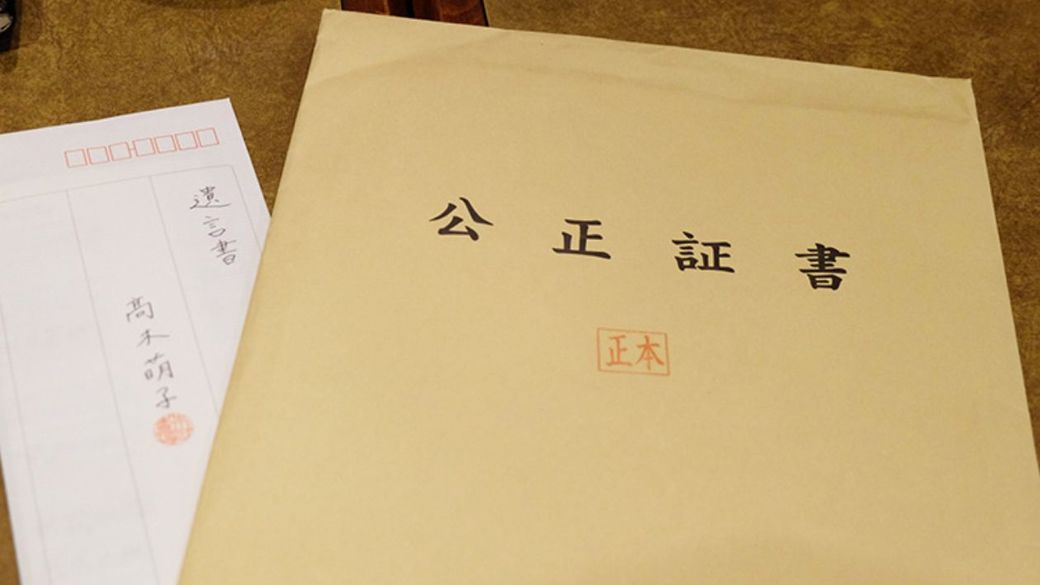 遺言書
髙木萌子
公正証書
正本